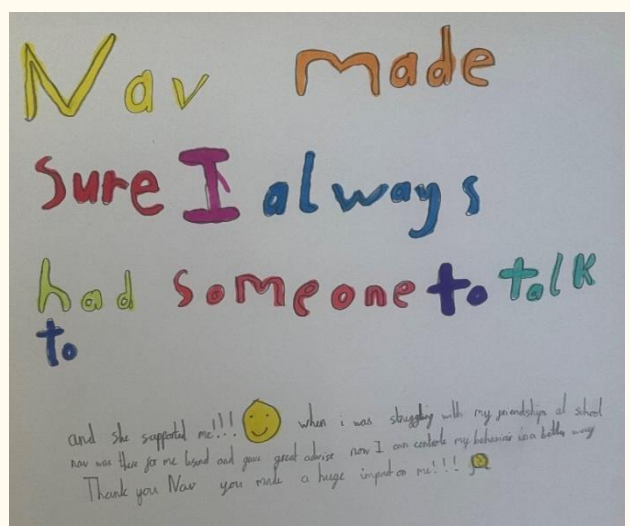 Nav made
sure I always
had someone to talk
to
and she supported me!!! when i was struggling with my friendships at school
nav was there for me lisend and gave great advise now I can controle my behaviour in a better way
Thank you Nav you made a huge impact on me!!!